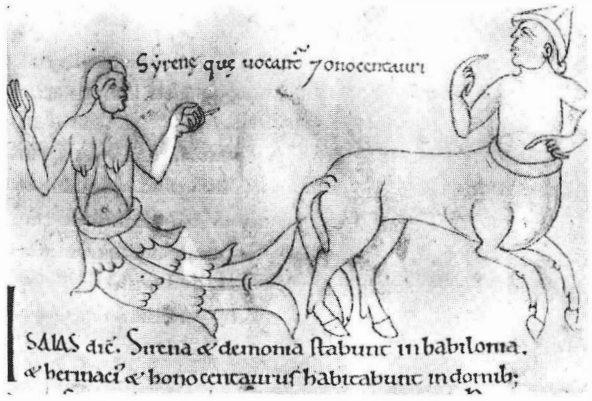 Syrenę quę uocant̄ ⁊ onocentauri
ISAIAS dic̄. Sirena & demonia stabunt in babilonia.
& herinaci' & honocentaurus habitabunt in domib;